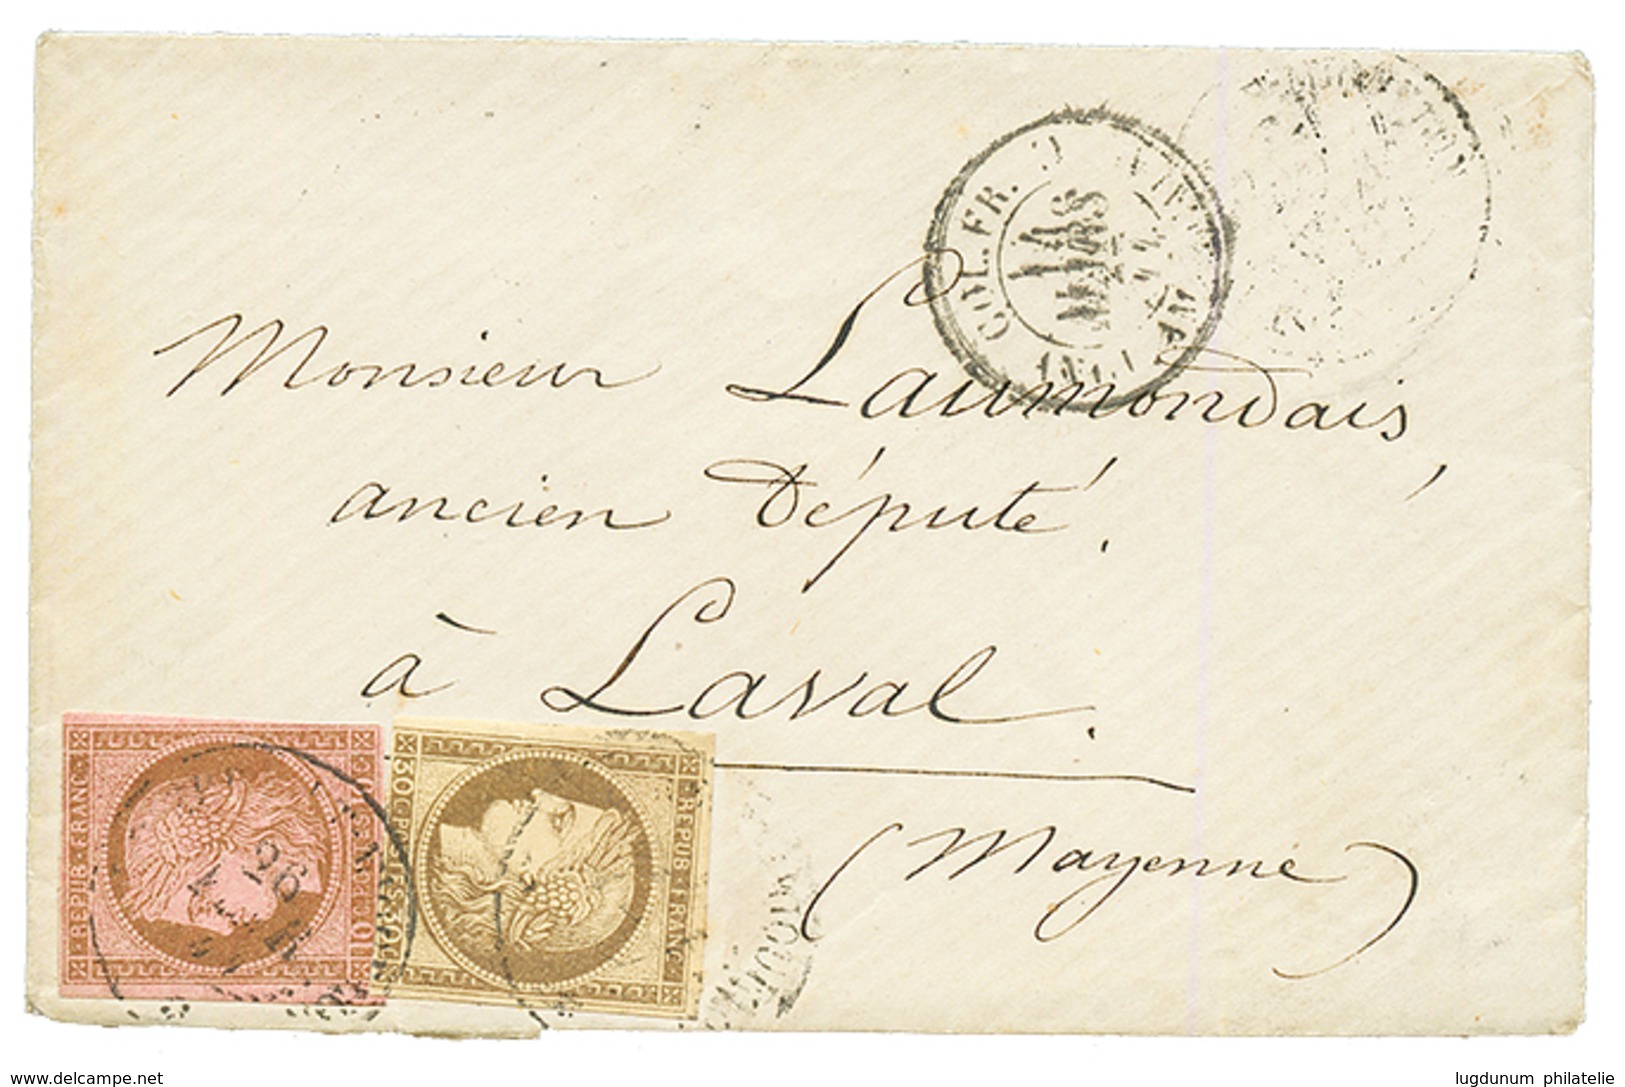 COL. FR.
14
MARS
Monsieur Laumondais,
ancien Député,
à Laval.
(Mayenne)
REPUB · FRANC ·
10 C. POSTES 10 C.
26
30 C. POSTES 30 C.
REPUB · FRANC ·
www.delcampe.net
lugdunum philatelie